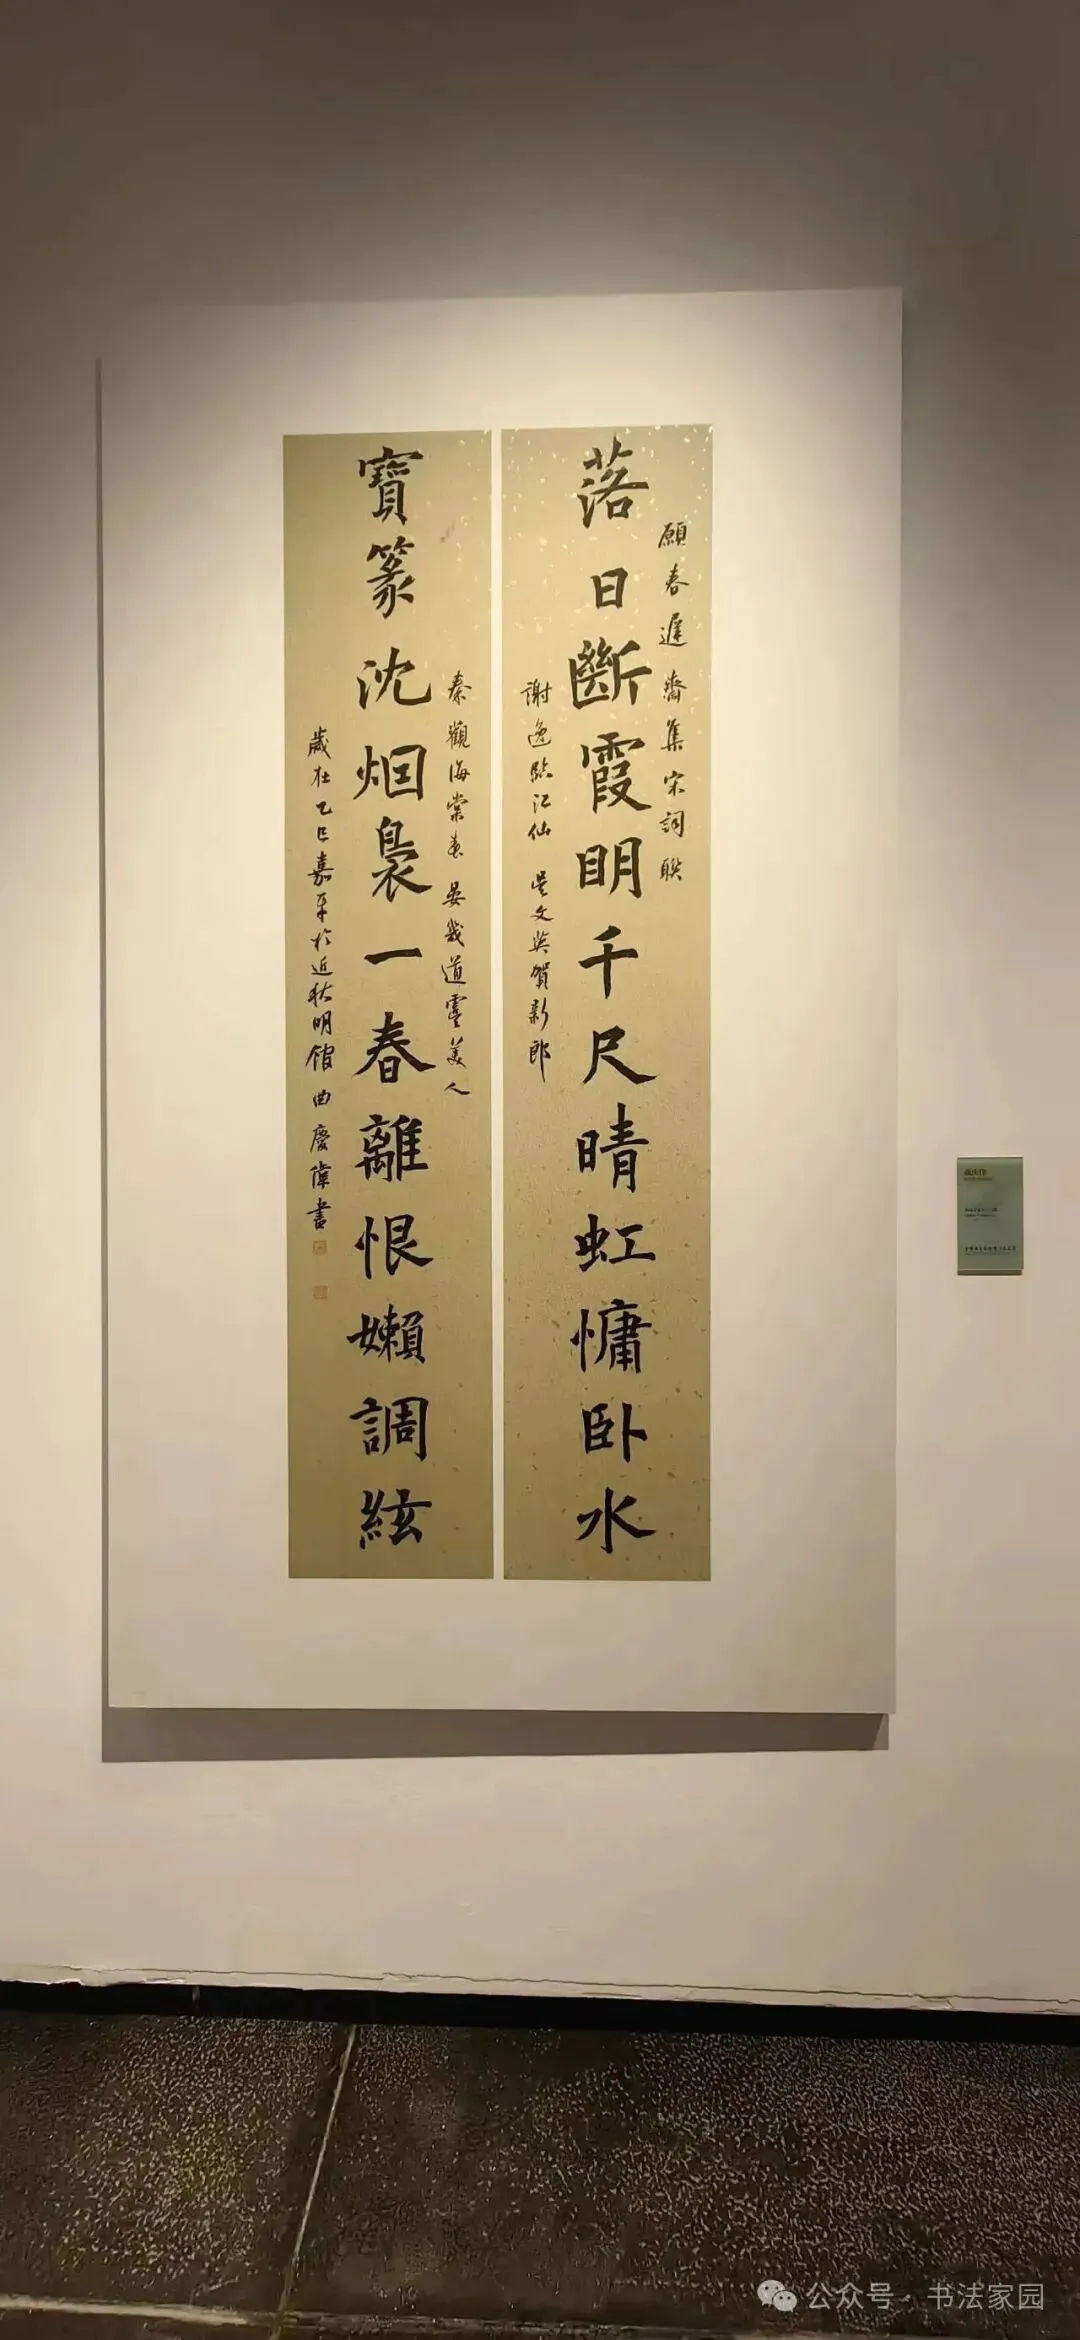 願春遲齋集宋詞聯
落日斷霞明千尺晴虹慵卧水
謝逸臨江仙 吳文英賀新郎
秦觀海棠春 晏幾道虞美人
寶篆沈烟裊一春離恨嬾調絃
歲在乙巳嘉平於近狄明館曲慶偉書
公众号·书法家园